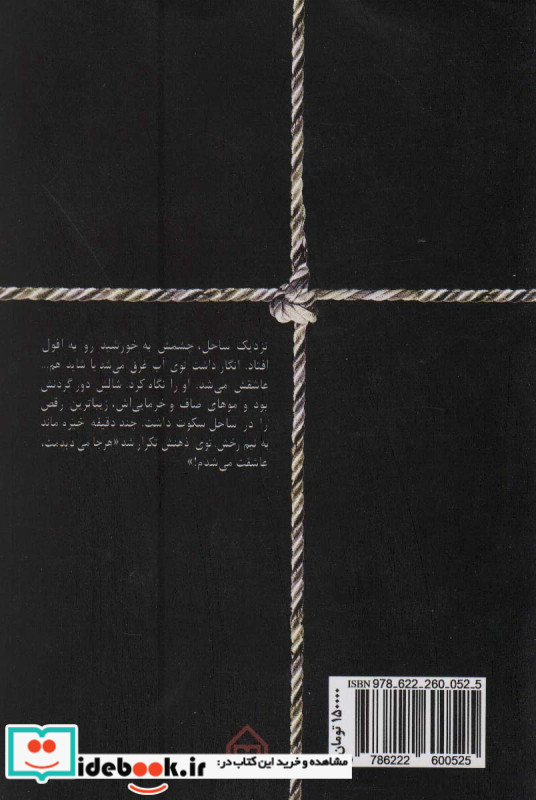 نزدیک ساحل، چشمش به خورشید رو به افول
افتاد. انگار داشت توی آب غرق می‌شد یا شاید هم...
عاشقش می‌شد. او را نگاه کرد. شالش دور گردنش
بود و موهای صاف و خرمایی‌اش، زیباترین رقص
را در ساحل سکوت داشت. چند دقیقه خیره ماند
به نیم رخش. توی ذهنش تکرار شد «هرجا می‌دیدمت،
عاشقت می‌شدم!»
ISBN 978_622_260_052_5
۱۵۰۰۰۰ تومان
786222 600525
idebook.ir
مشاهده و خرید این کتاب در: